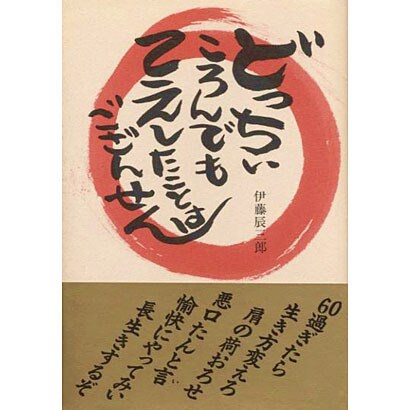 どっちぃ
ころんでも
てえしたことは
ござんせん
伊藤辰三郎
60過ぎたら
生き方変えろ
肩の荷おろせ
悪口たんと言い
愉快にやってみい
長生きするぞ